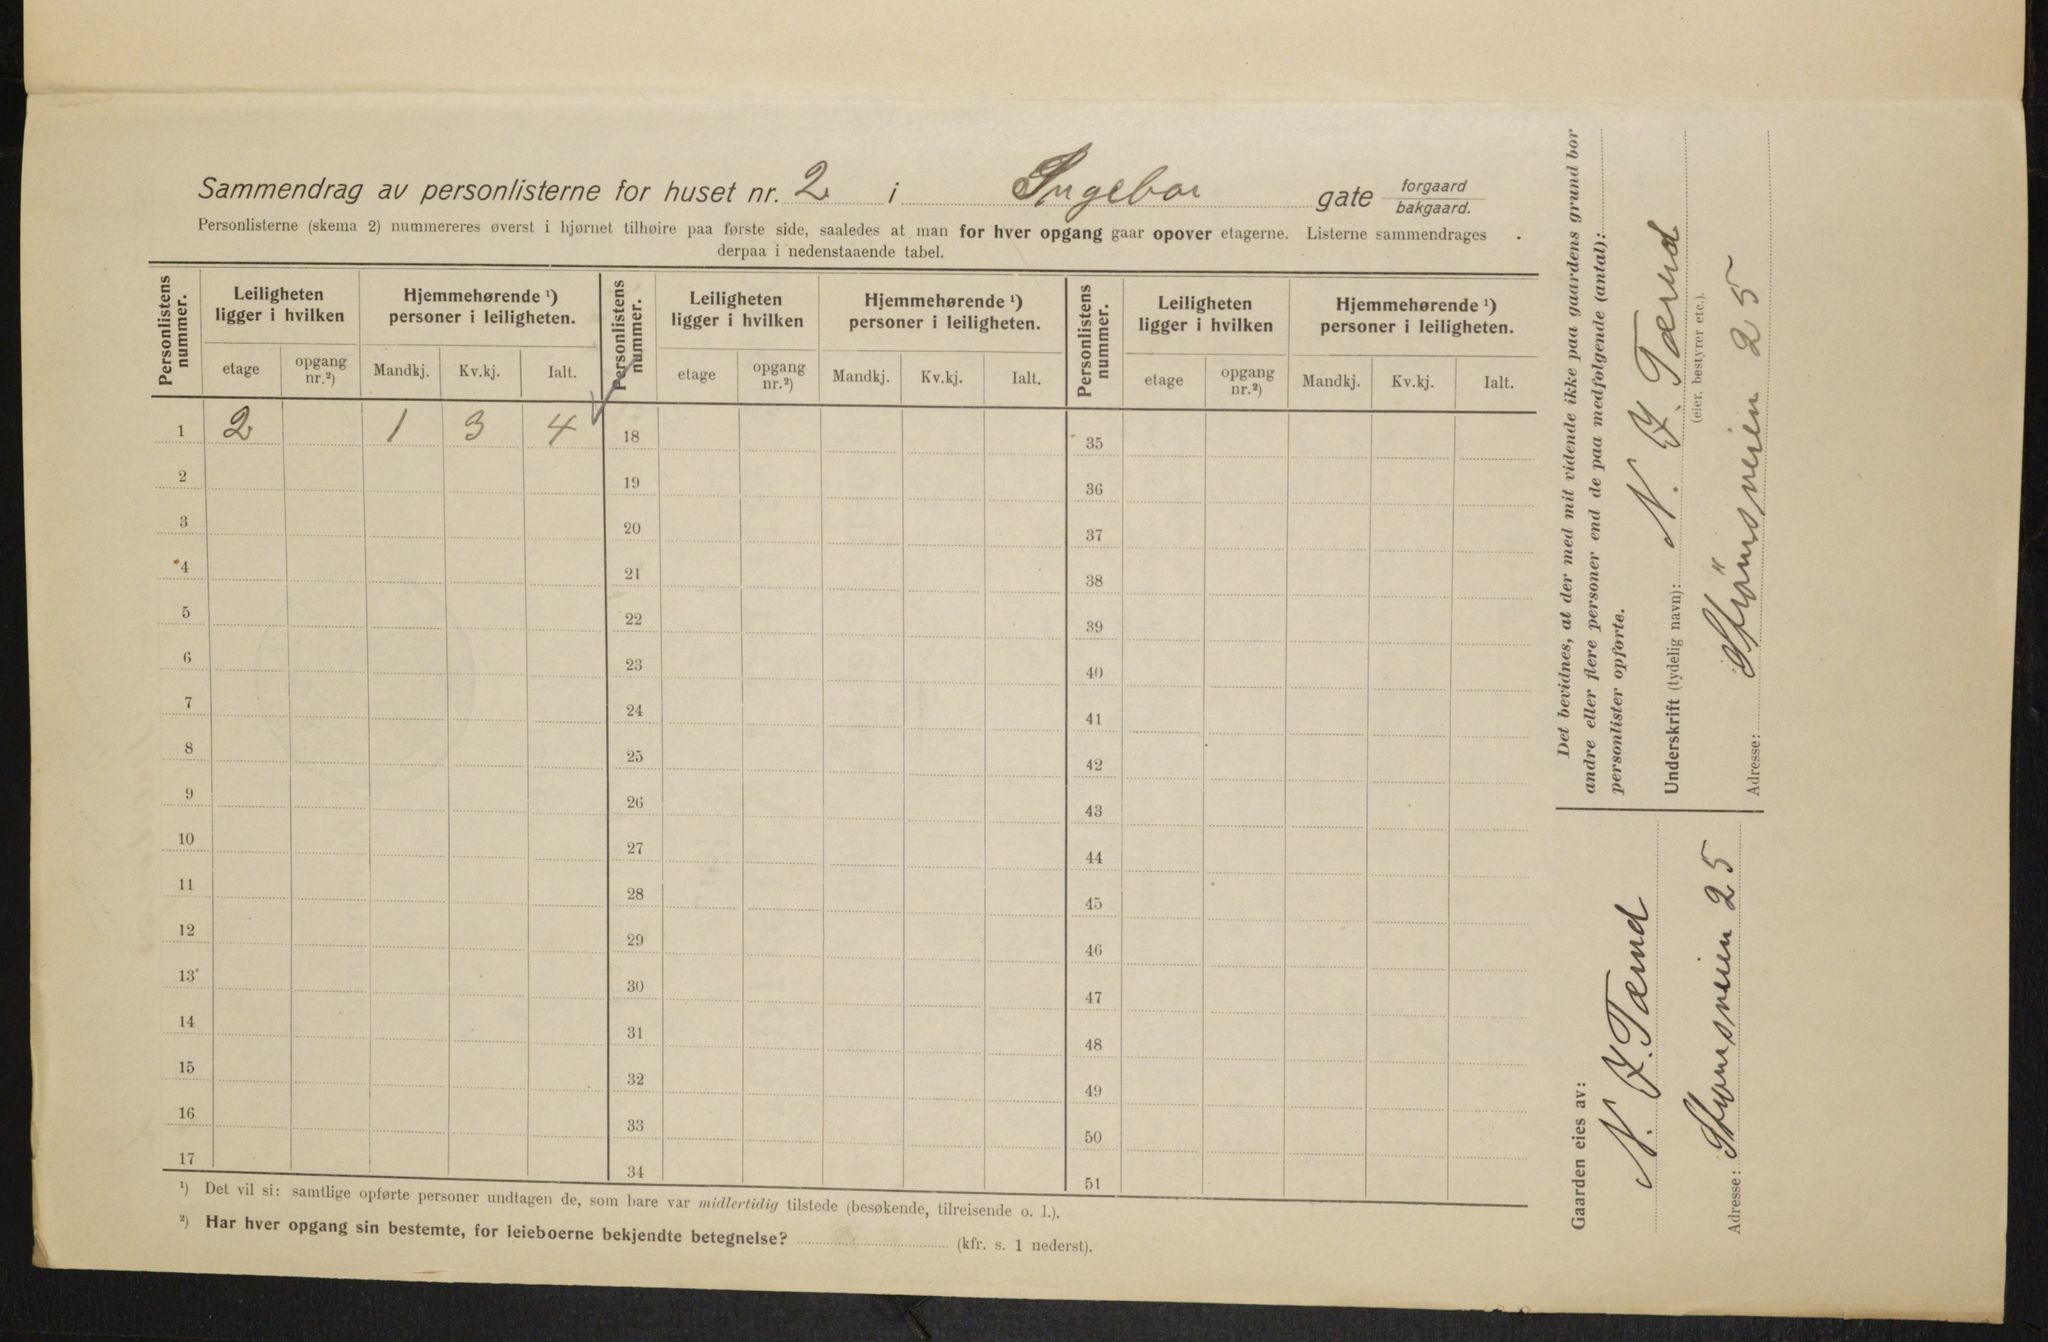 Sammendrag av personlisterne for huset nr. 2 i Ingebor gate forgaard bakgaard.
Personlisterne (skema 2) nummereres øverst i hjørnet tilhøire paa første side, saaledes at man for hver opgang gaar opover etagerne. Listerne sammendrages
derpaa i nedenstaaende tabel.
Personlistens nummer. Leiligheten ligger i hvilken Hjemmehørende ¹) personer i leiligheten. Personlistens nummer. Leiligheten ligger i hvilken Hjemmehørende ¹) personer i leiligheten. Personlistens nummer. Leiligheten ligger i hvilken Hjemmehørende ¹) personer i leiligheten.
etage opgang nr.²) Mandkj. Kv.kj. Ialt. etage opgang nr.²) Mandkj. Kv.kj. Ialt. etage opgang nr.²) Mandkj. Kv.kj. Ialt.
1 2 1 3 4 18 35
2 19 36
3 20 37
4 21 38
5 22 39
6 23 40
7 24 41
8 25 42
9 26 43
10 27 44
11 28 45
12 29 46
13 30 47
14 31 48
15 32 49
16 33 50
17 34 51
¹) Det vil si: samtlige opførte personer undtagen de, som bare var midlertidig tilstede (besøkende, tilreisende o. l.).
²) Har hver opgang sin bestemte, for leieboerne bekjendte betegnelse? (kfr. s. 1 nederst).
Det bevidnes, at der med mit vidende ikke paa gaardens grund bor
andre eller flere personer end de paa medfølgende (antal):
personlister opførte.
Underskrift (tydelig navn): N. F. Tærud
(eier, bestyrer etc.).
Adresse: Strömsveien 25
Gaarden eies av:
N. F. Tærud
Adresse: Strömsveien 25